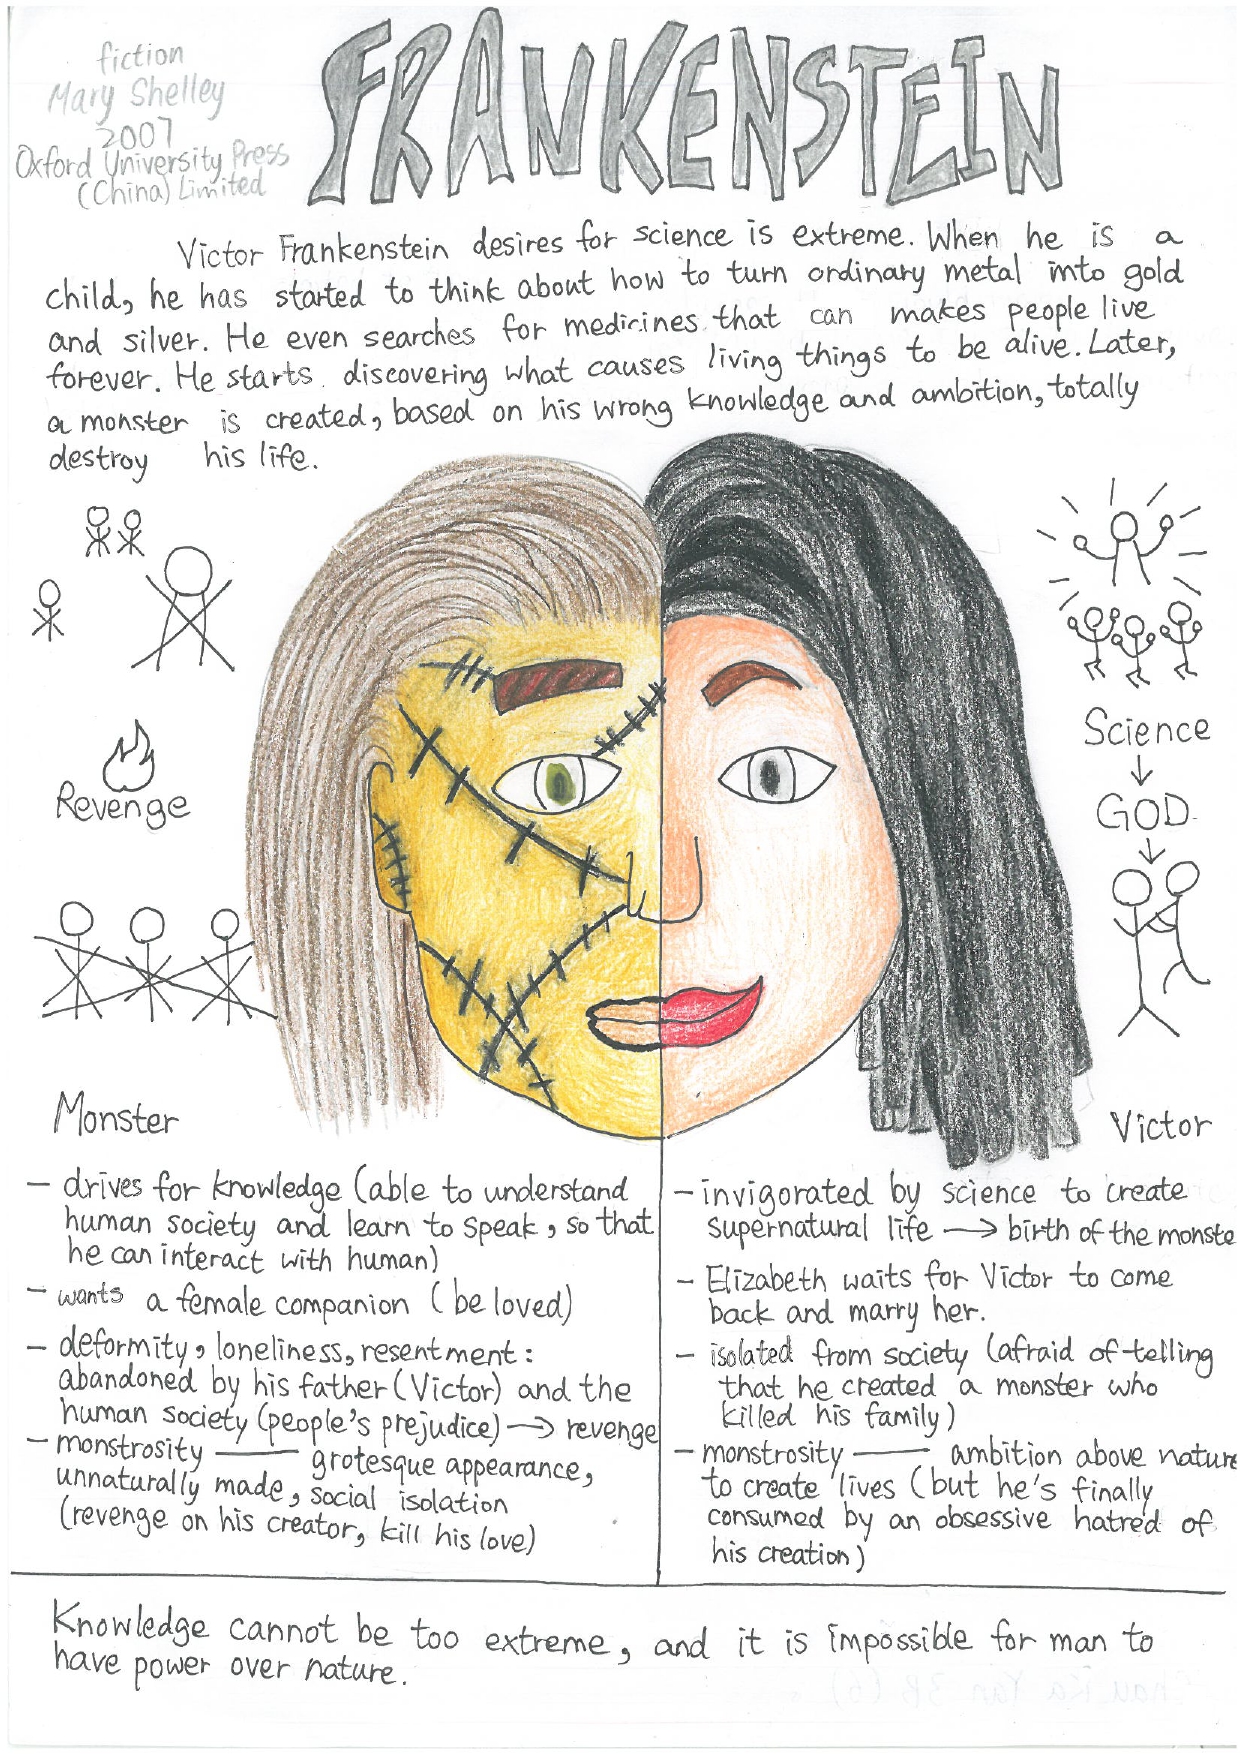 FRANKENSTEIN
fiction
Mary Shelley
2007
Oxford University Press
(China) Limited
Victor Frankenstein desires for science is extreme. When he is a
child, he has started to think about how to turn ordinary metal into gold
and silver. He even searches for medicines that can makes people live
forever. He starts discovering what causes living things to be alive. Later,
a monster is created, based on his wrong knowledge and ambition, totally
destroy his life.
Revenge
Science
GOD
Monster
- drives for knowledge (able to understand
human society and learn to speak, so that
he can interact with human)
- wants a female companion (be loved)
- deformity, loneliness, resentment:
abandoned by his father (Victor) and the
human society (people's prejudice) → revenge
- monstrosity — grotesque appearance,
unnaturally made, social isolation
(revenge on his creator, kill his love)
Victor
- invigorated by science to create
supernatural life → birth of the monste
- Elizabeth waits for Victor to come
back and marry her.
- isolated from society (afraid of telling
that he created a monster who
killed his family)
- monstrosity — ambition above nature
to create lives (but he's finally
consumed by an obsessive hatred of
his creation)
Knowledge cannot be too extreme, and it is impossible for man to
have power over nature.